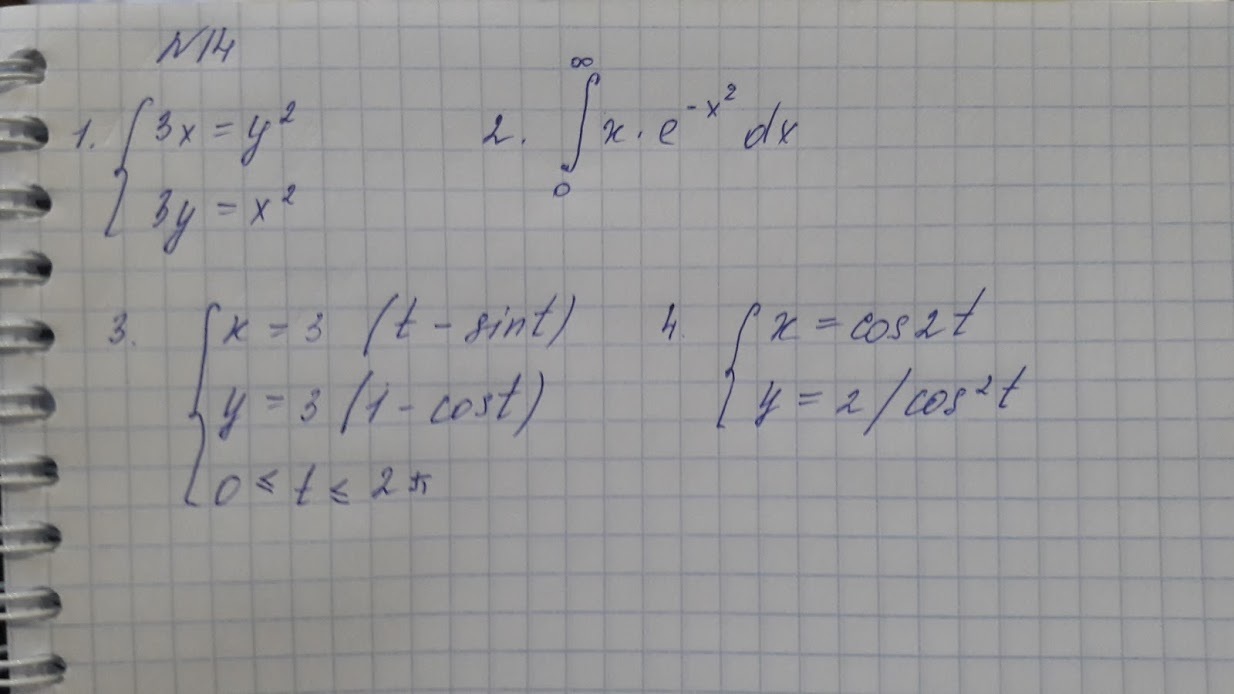 №14
1. { 3x = y²
3y = x²
2. ∫₀^∞ x · e^(-x²) dx
3. { x = 3 (t - sint)
y = 3 (1 - cost)
0 ≤ t ≤ 2π
4. { x = cos2t
y = 2/cos²t